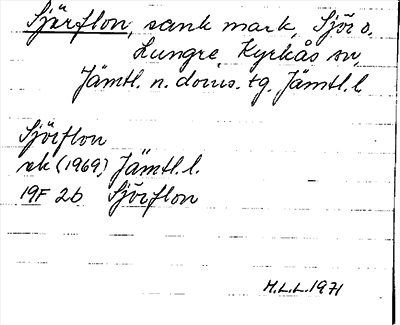 Sjörflon, sank mark, Sjör o.
Lungre, Kyrkås sn,
Jämtl. n. doms. tg. Jämtl. l
Sjörflon
ek (1969) Jämtl. l.
19F 2b Sjörflon
M.L.L. 1971